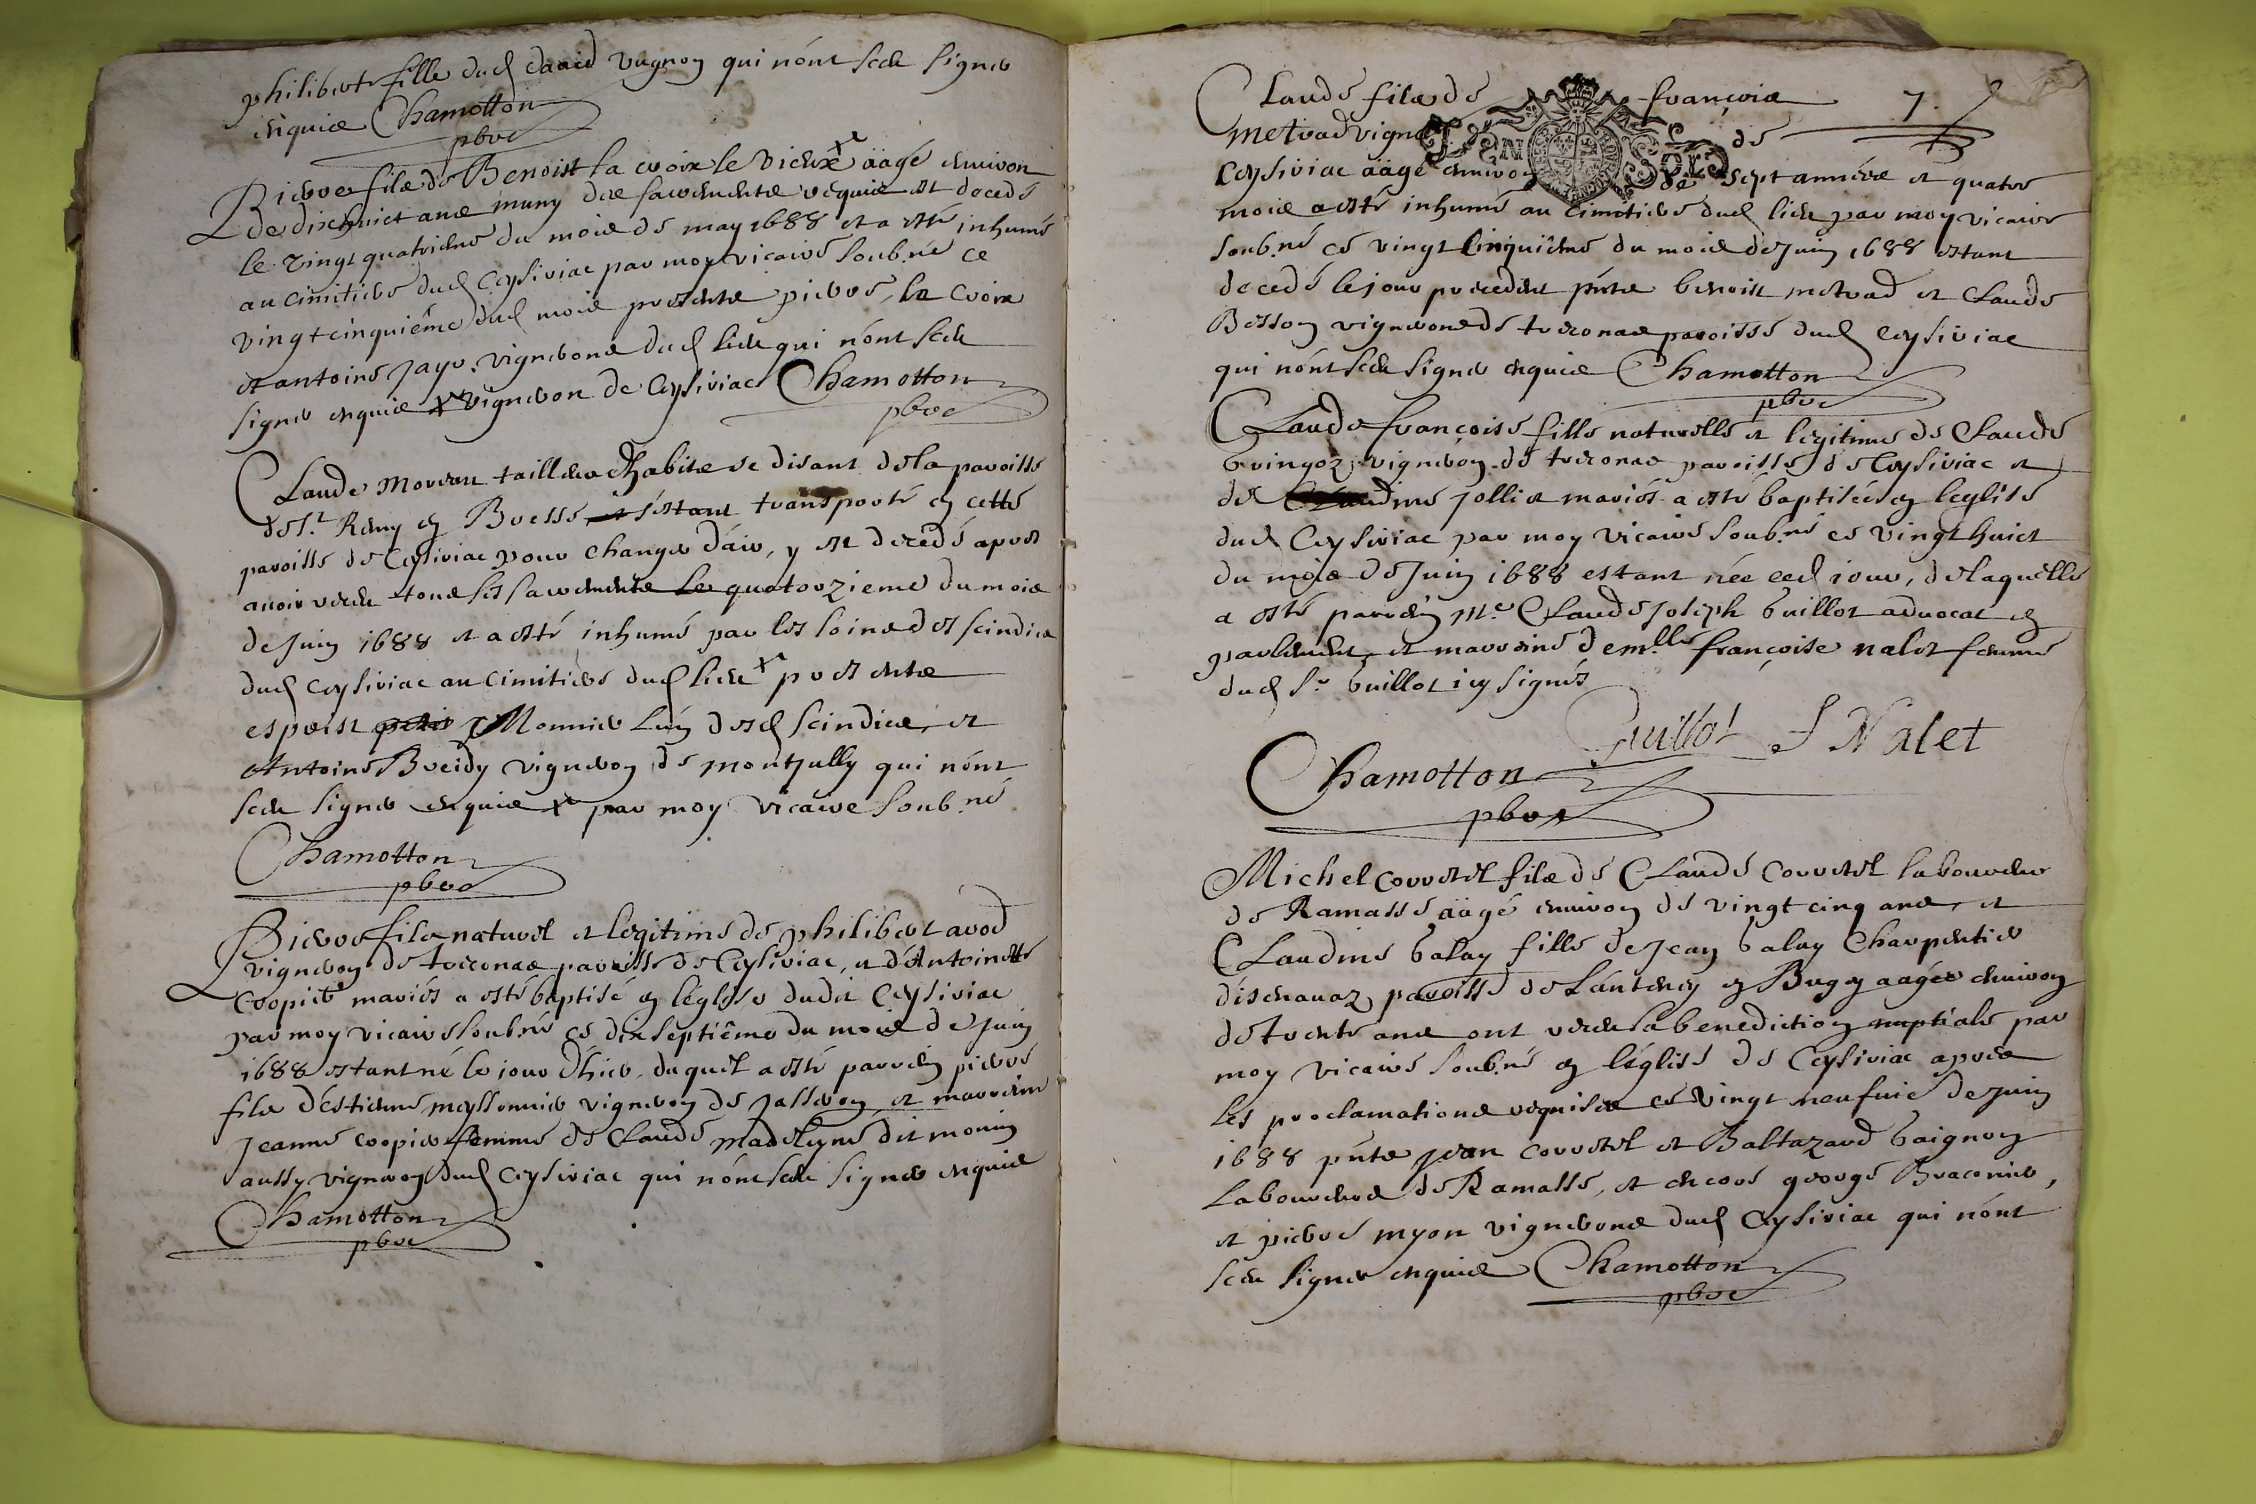 philiberte fille dud david vugnon qui n'ont sceu signer
enquis Chamotton
pbre
Pierre fils de Benoist la croix le vieux x aagé environ
de dixhuict ans muny des sacrements requis est decedé
le vingt quatrieme du mois de may 1688 et a esté inhumé
au cimitiere dud Ceysiriac par moy vicaire soub.né ce
vingt cinquiéme dud mois presents pierre la croix
et antoine jayr vignerons dud lieu qui n'ont sceu
signer enquis x vigneron de Ceysiriac Chamotton
pbre
Claude moreau tailleur d'habits se disant de la paroisse
de St. Remy en Bresse s'estant transporté en cette
paroisse de Ceysiriac pour changer d'air, y est decedé apres
avoir receu tous ses sacrements le quatorzieme du mois
de Juin 1688 et a esté inhumé par les soins des scindics
dud Ceysiriac au cimitiere dud lieu x presents
esprist Monnier l'un desd scindics, et
Antoine Breidy vigneron de montjully qui n'ont
sceu signer enquis x par moy vicaire soub.né
Chamotton
pbre
Pierre fils naturel et legitime de philibert avod
vigneron de treconas paroisse de Ceysiriac, et d'Antoinette
Cropier mariés a esté baptisé en l'eglise dudit Ceysiriac
par moy vicaire soub.né ce dixseptiême du mois de juin
1688 estant né le jour d'hier, duquel a esté parrein pierre
fils d'estienne meyssonnier vigneron de jasseron et marreine
jeanne cropier femme de Claude madeleyne dit monin
aussy vigneron dud Ceysiriac qui n'ont sceu signer enquis
Chamotton
pbre
Claude fils de françois 7.
metrad vigneron de
Ceysiriac aâgé environ de sept années et quatre
mois a esté inhumé au cimitiere dud lieu par moy vicaire
soub.né ce vingt cinquiême du mois de Juin 1688 estant
decedé le jour precedent pnts benoist metrad et Claude
Besson vignerons de treconas paroisse dud Ceysiriac
qui n'ont sceu signer enquis Chamotton
pbre
Claude françoise fille naturelle et legitime de Claude
bringoz vigneron de treconas paroisse de Ceysiriac et
de Claudine jollie mariés a esté baptisée en l'eglise
dud Ceysiriac par moy vicaire soub.né ce vingt huict
du mois de Juin 1688 estant née ced jour, de laquelle
a esté parrein Me Claude joseph guillot advocat en
parlement, et marreine demlle françoise nalet femme
dud Sr guillot icy signés
Guillot f Nalet
Chamotton
pbre
Michel corretel fils de Claude corretel laboureur
de Ramasse aâgé environ de vingt cinq ans, et
Claudine balay fille de jean balay Charpentier
paroisse de Lantenay en Bugey aagée environ
de trente ans ont receu la benediction nuptiale par
moy vicaire soub.né en l'église de Ceysiriac apres
les proclamations requises ce vingt neufvie de juin
1688 pnts jean corretel et Baltazard baignon
laboureurs de Ramasse, et encore george Braconnier,
et pierre myon vignerons dud Ceysiriac qui n'ont
sceu signer enquis Chamotton
pbre